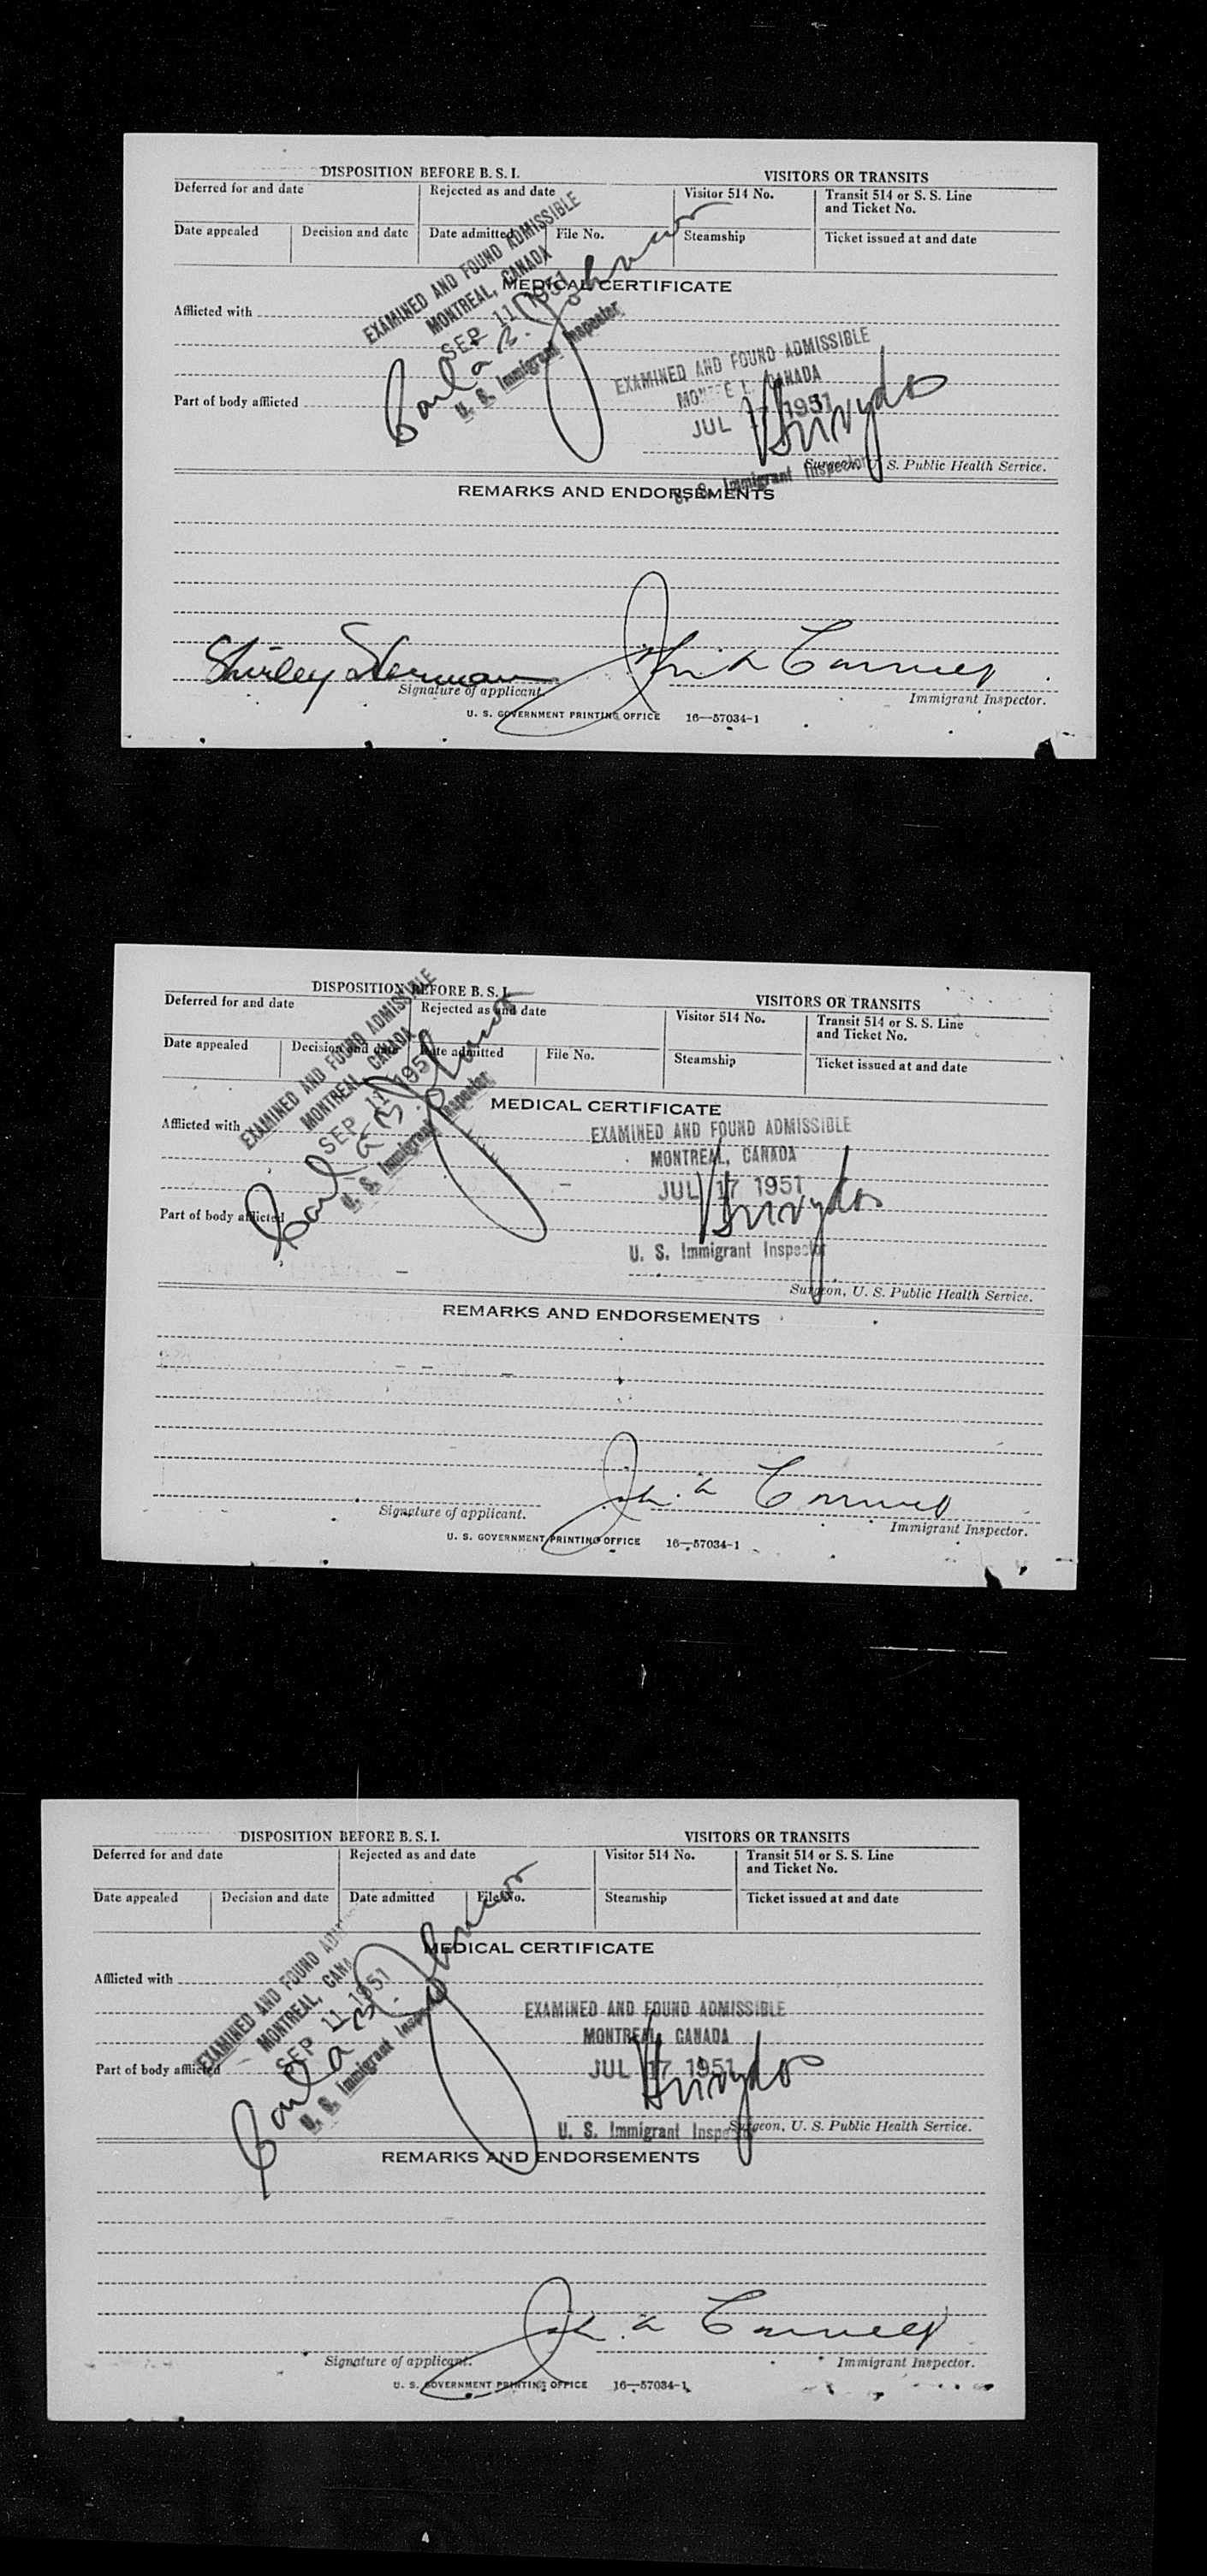 DISPOSITION BEFORE B. S. I.
VISITORS OR TRANSITS
Deferred for and date
Rejected as and date
Visitor 514 No.
Transit 514 or S. S. Line
and Ticket No.
Date appealed
Decision and date
Date admitted
File No.
Steamship
Ticket issued at and date
EXAMINED AND FOUND ADMISSIBLE
MONTREAL, CANADA
SEP 11 1951
U. S. Immigrant Inspector
MEDICAL CERTIFICATE
Afflicted with
EXAMINED AND FOUND ADMISSIBLE
CANADA
JUL 1951
Part of body afflicted
U. S. Immigrant Inspector
Surgeon, U. S. Public Health Service.
REMARKS AND ENDORSEMENTS
Shirley Sherman
Signature of applicant.
Immigrant Inspector.
U. S. GOVERNMENT PRINTING OFFICE 16—57034-1
DISPOSITION BEFORE B. S. I.
VISITORS OR TRANSITS
Deferred for and date
Rejected as and date
Visitor 514 No.
Transit 514 or S. S. Line
and Ticket No.
Date appealed
Decision and date
Date admitted
File No.
Steamship
Ticket issued at and date
EXAMINED AND FOUND ADMISSIBLE
MONTREAL, CANADA
SEP 11 1951
U. S. Immigrant Inspector
MEDICAL CERTIFICATE
Afflicted with
EXAMINED AND FOUND ADMISSIBLE
MONTREAL, CANADA
JUL 17 1951
Part of body afflicted
U. S. Immigrant Inspector
Surgeon, U. S. Public Health Service.
REMARKS AND ENDORSEMENTS
Signature of applicant.
Immigrant Inspector.
U. S. GOVERNMENT PRINTING OFFICE 16—57034-1
DISPOSITION BEFORE B. S. I.
VISITORS OR TRANSITS
Deferred for and date
Rejected as and date
Visitor 514 No.
Transit 514 or S. S. Line
and Ticket No.
Date appealed
Decision and date
Date admitted
File No.
Steamship
Ticket issued at and date
EXAMINED AND FOUND
MONTREAL, CANA
SEP 11 1951
U. S. Immigrant
MEDICAL CERTIFICATE
Afflicted with
EXAMINED AND FOUND ADMISSIBLE
MONTREAL, CANADA
JUL 17 1951
Part of body afflicted
U. S. Immigrant Inspector
Surgeon, U. S. Public Health Service.
REMARKS AND ENDORSEMENTS
Signature of applicant.
Immigrant Inspector.
U. S. GOVERNMENT PRINTING OFFICE 16—57034-1